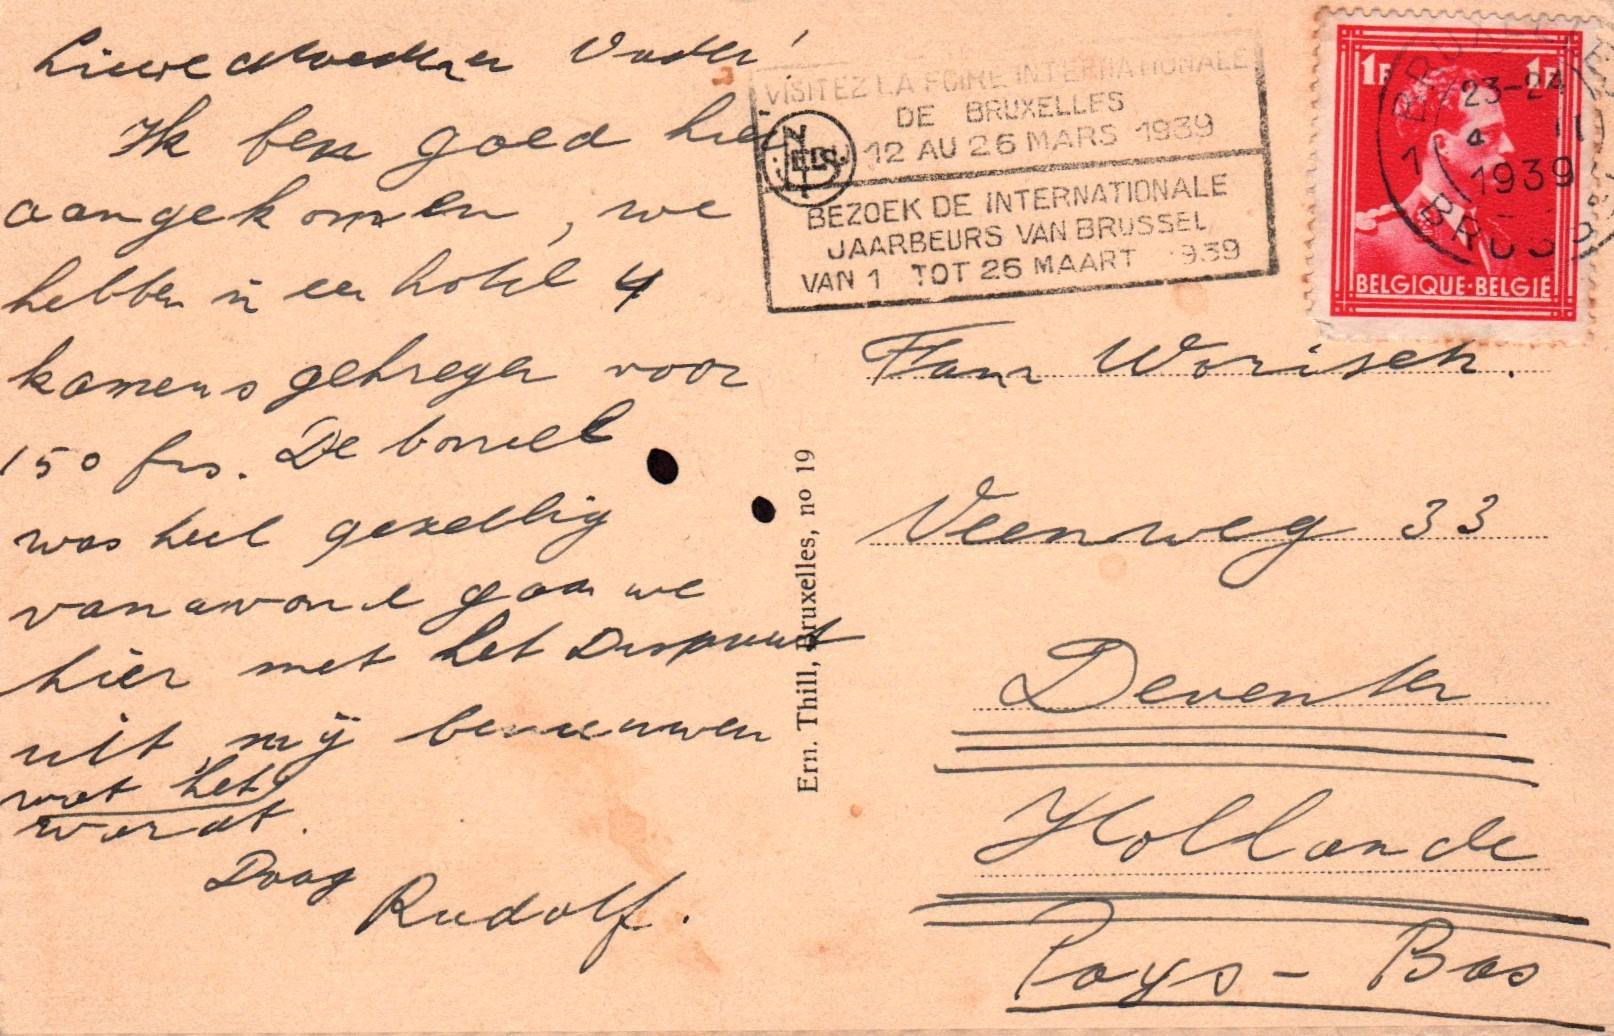 Lieve Moeder en Vader!
Ik ben goed hier
aangekomen, we
hebben in een hotel 4
kamers gekregen voor
150 frs. De borrel
was heel gezellig
vanavond gaan we
hier met het Dispuut
uit, mij benieuwen
wat het
wordt.
Daag
Rudolf.
VISITEZ LA FOIRE INTERNATIONALE
DE BRUXELLES
12 AU 26 MARS 1939
BEZOEK DE INTERNATIONALE
JAARBEURS VAN BRUSSEL
VAN 1 TOT 26 MAART 1939
NELS
1F 1F
BELGIQUE-BELGIË
23-24
4 II
1939
Ern. Thill, Bruxelles, no 19
Fam Worisek.
Veenweg 33
Deventer
Hollande
Pays-Bas